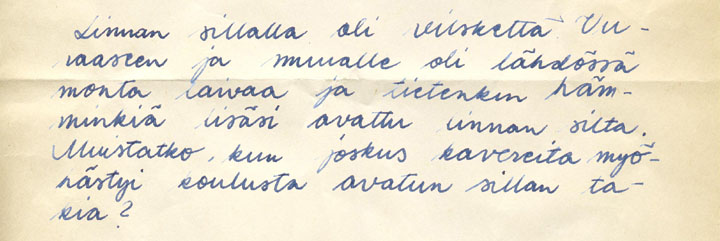 Linnan sillalla oli vilskettä. Uu-
raaseen ja muualle oli lähdössä
monta laivaa ja tietenkin häm-
minkiä lisäsi avattu linnan silta.
Muistatko, kun joskus kavereita myö-
hästyi koulusta avatun sillan ta-
kia?